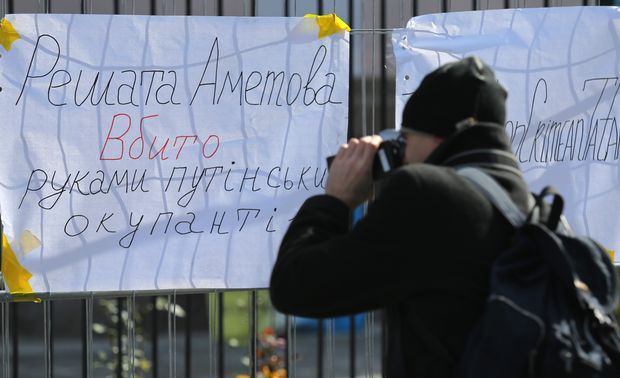 Решата Аметова
Вбито
руками путінськи
окупанті
CrimeanTATA